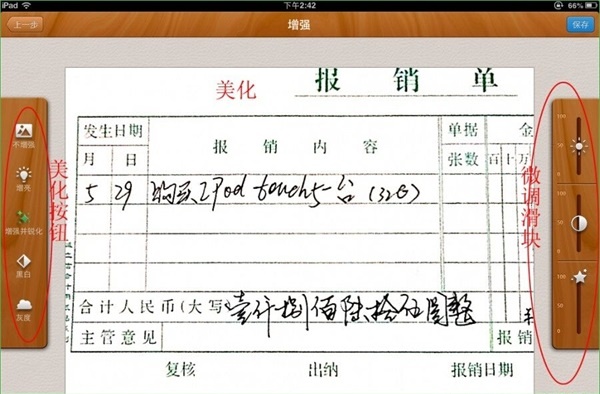 iPad 下午2:42 66%
上一步 增强 保存
美化
报销单
发生日期 报销内容 单据 金
月 日 张数 百十万
5 29 购买iPod touch5一台(32G)
合计人民币(大写) 壹仟捌佰陆拾伍圆整
主管意见 报销
复核 出纳 报销日期
美化按钮
不增强
增亮
增强并锐化
黑白
灰度
微调滑块
100
50
0
100
50
0
100
50
0